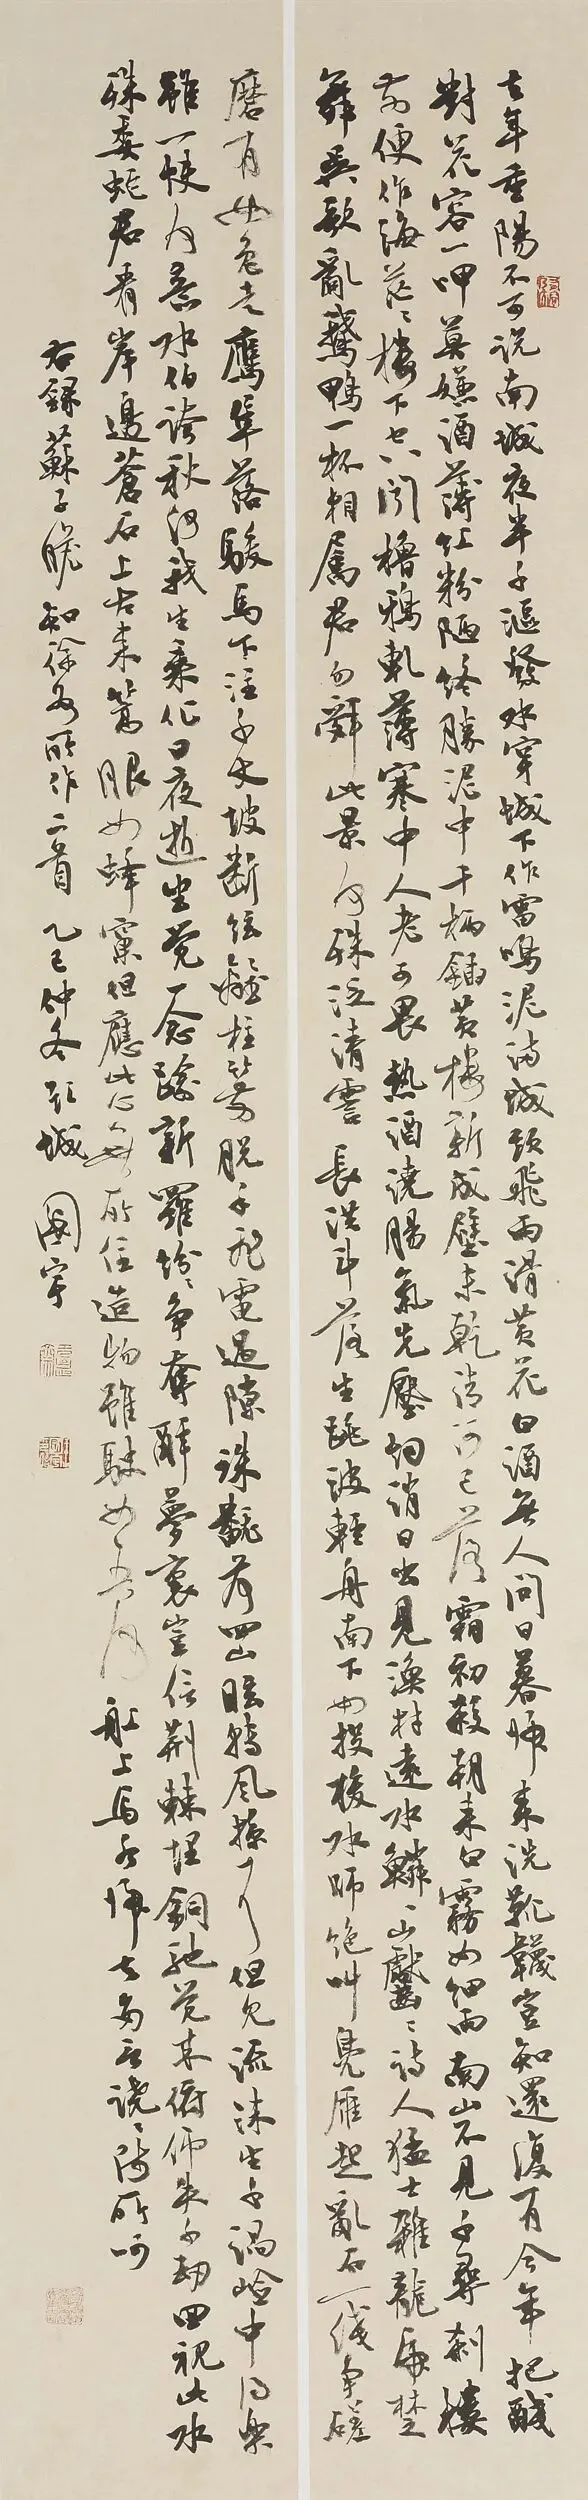 去年重陽不可說南城夜半千漚發水穿城下作雷鳴泥滿城頭飛雨滑黃花白酒無人問日暮歸來洗靴韈豈知還復有今年把醆
對花容一呷莫嫌酒薄紅粉陋終勝泥中千柄鍤黃樓新成壁未乾清河已落霜初殺朝來白霧如細雨南山不見千尋刹樓
前便作海茫〻樓下空聞櫓鴉軋薄寒中人老可畏熱酒澆腸氣先壓烟消日出見漁村遠水鱗〻山齾〻詩人猛士雜龍虎楚
舞吳歌亂鵝鴨一杯相屬君勿辭此景何殊泛清霅 長洪斗落生跳波輕舟南下如投梭水師絕叫鳧雁起亂石一綫爭磋
磨有如兔走鷹隼落駿馬下注千丈坡斷弦離柱箭脫手飛電過隙珠翻荷四山眩轉風掠耳但見流沫生千渦嶮中得樂
雖一快何意水伯誇秋河我生乘化日夜逝坐覺一念踰新羅紛〻爭奪醉夢裏豈信荊棘埋銅駝覺來俯仰失千劫回視此水
殊委蛇君看岸邊蒼石上古來篙眼如蜂窠但應此心無所住造物雖駛如吾何 船上馬各歸去多言譊〻師所呵
右錄蘇子瞻知徐州所作二首 乙巳仲冬 城 國宇